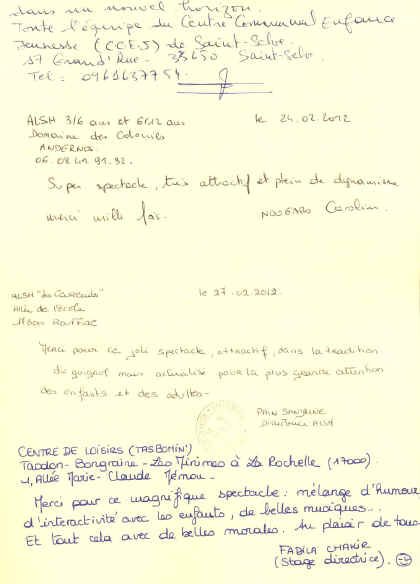 dans un nouvel horizon.
Toute l'équipe du Centre Communal Enfance
Jeunesse (CCEJ) de Saint-Selve.
17 Grand'Rue - 33650 Saint-Selve.
Tel: 0961637754.
ALSH 3/6 ans et 6/12 ans le 24.02.2012
Domaine des Colonies
ANDERNOS
06.08.41.91.92.
Super spectacle, très attractif et plein de dynamisme
merci mille fois. NOUGARO Caroline.
ALSH le 27.02.2012
Allée de l'école
Merci pour ce joli spectacle, attractif, dans la tradition
du guignol mais actualisé pour la plus grande attention
des enfants et des adultes-
Directrice ALSH
CENTRE DE LOISIRS (TASBOMIN')
Tasdon-Bongraine-Les Minimes à La Rochelle (17000).
4, Allée Marie-Claude Mémon-
Merci pour ce magnifique spectacle: mélange d'humour,
d'interactivité avec les enfants, de belles musiques...
Et tout cela avec de belles morales. Au plaisir de tous
FABILA CHAKIR
(Stage directrice).